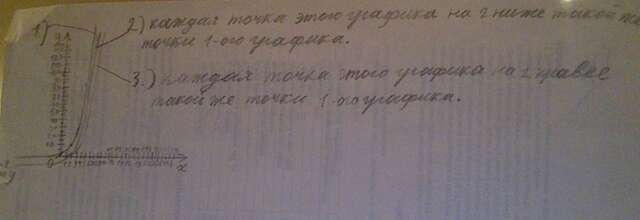 1)
2) каждая точка этого графика на 2 ниже такой же
точки 1-ого графика.
3.) каждая точка этого графика на 2 правее
такой же точки 1-ого графика.
0
x